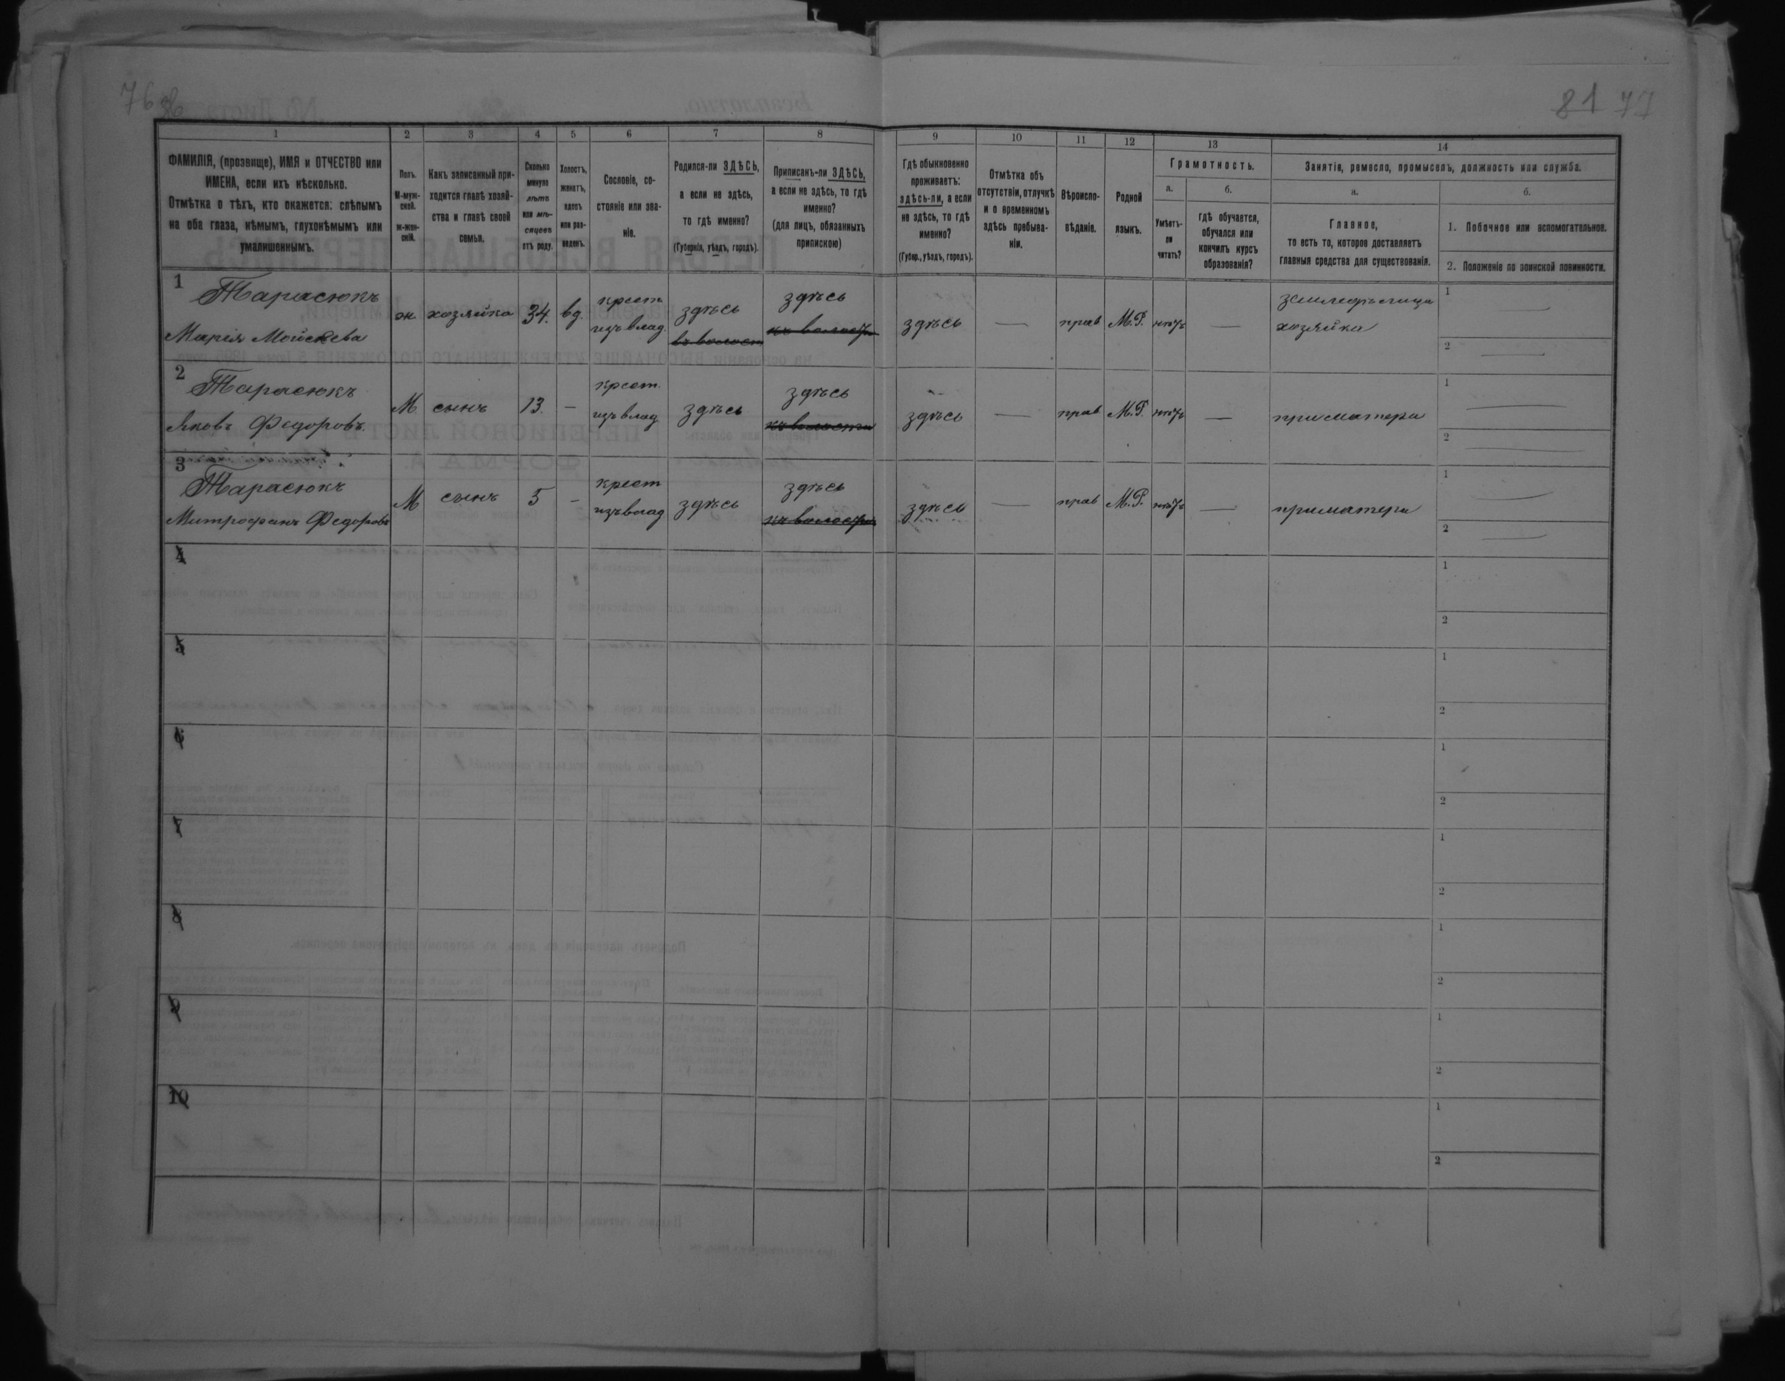 76
81 77
1
2
3
4
5
6
7
8
9
10
11
12
13
14
ФАМИЛІЯ, (прозвище), ИМЯ и ОТЧЕСТВО или
ИМЕНА, если ихъ нѣсколько.
Отмѣтка о тѣхъ, кто окажется: слѣпымъ
на оба глаза, нѣмымъ, глухонѣмымъ или
умалишеннымъ.
Полъ.
М-муж-
ской.
ж-жен-
скій.
Какъ записанный при-
ходится главѣ хозяй-
ства и главѣ своей
семьи.
Сколько
минуло
лѣтъ
или мѣ-
сяцевъ
отъ роду.
Холостъ,
женатъ,
вдовъ
или раз-
веденъ.
Сословіе, со-
стояніе или зва-
ніе.
Родился-ли ЗДѢСЬ,
а если не здѣсь,
то гдѣ именно?
(Губернія, уѣздъ, городъ).
Приписанъ-ли ЗДѢСЬ,
а если не здѣсь, то гдѣ
именно?
(для лицъ, обязанныхъ
припискою)
Гдѣ обыкновенно
проживаетъ:
здѣсь-ли, а если
не здѣсь, то гдѣ
именно?
(Губер., уѣздъ, городъ).
Отмѣтка объ
отсутствіи, отлучкѣ
и о временномъ
здѣсь пребыва-
ніи.
Вѣроиспо-
вѣданіе.
Родной
языкъ.
Грамотность.
а.
б.
Умѣетъ-
ли
читать?
гдѣ обучается,
обучался или
кончилъ курсъ
образованія?
Занятіе, ремесло, промыселъ, должность или служба.
а.
б.
Главное,
то есть то, которое доставляетъ
главныя средства для существованія.
1. Побочное или вспомогательное.
2. Положеніе по воинской повинности.
1
Тарасюкъ
Марія Мойсѣева
ж. хозяйка 34. вд.
крест
изъ влад
здѣсь
въ волости
здѣсь
къ волости
здѣсь — прав М.Р. нѣтъ —
земледѣлица
хозяйка
1 —
2 —
2
Тарасюкъ
Яковъ Федоровъ
М сынъ 13 —
крест
изъ влад
здѣсь
здѣсь
къ волости
здѣсь — прав М.Р. нѣтъ — при матери
1 —
2 —
3
Тарасюкъ
Митрофанъ Федоровъ
М сынъ 5 —
крест
изъ влад
здѣсь
здѣсь
къ волости
здѣсь — прав М.Р. нѣтъ — при матери
1 —
2 —
4
1
2
5
1
2
6
1
2
7
1
2
8
1
2
9
1
2
10
1
2